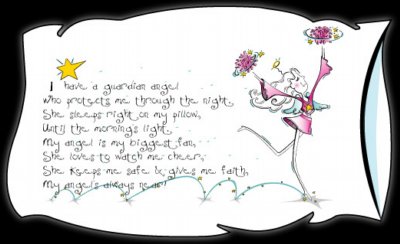 I have a guardian angel
who protects me through the night,
She sleeps right on my pillow,
Until the morning's light.
My angel is my biggest fan,
She loves to watch me cheer,
She keeps me safe & gives me faith,
My angel's always near!